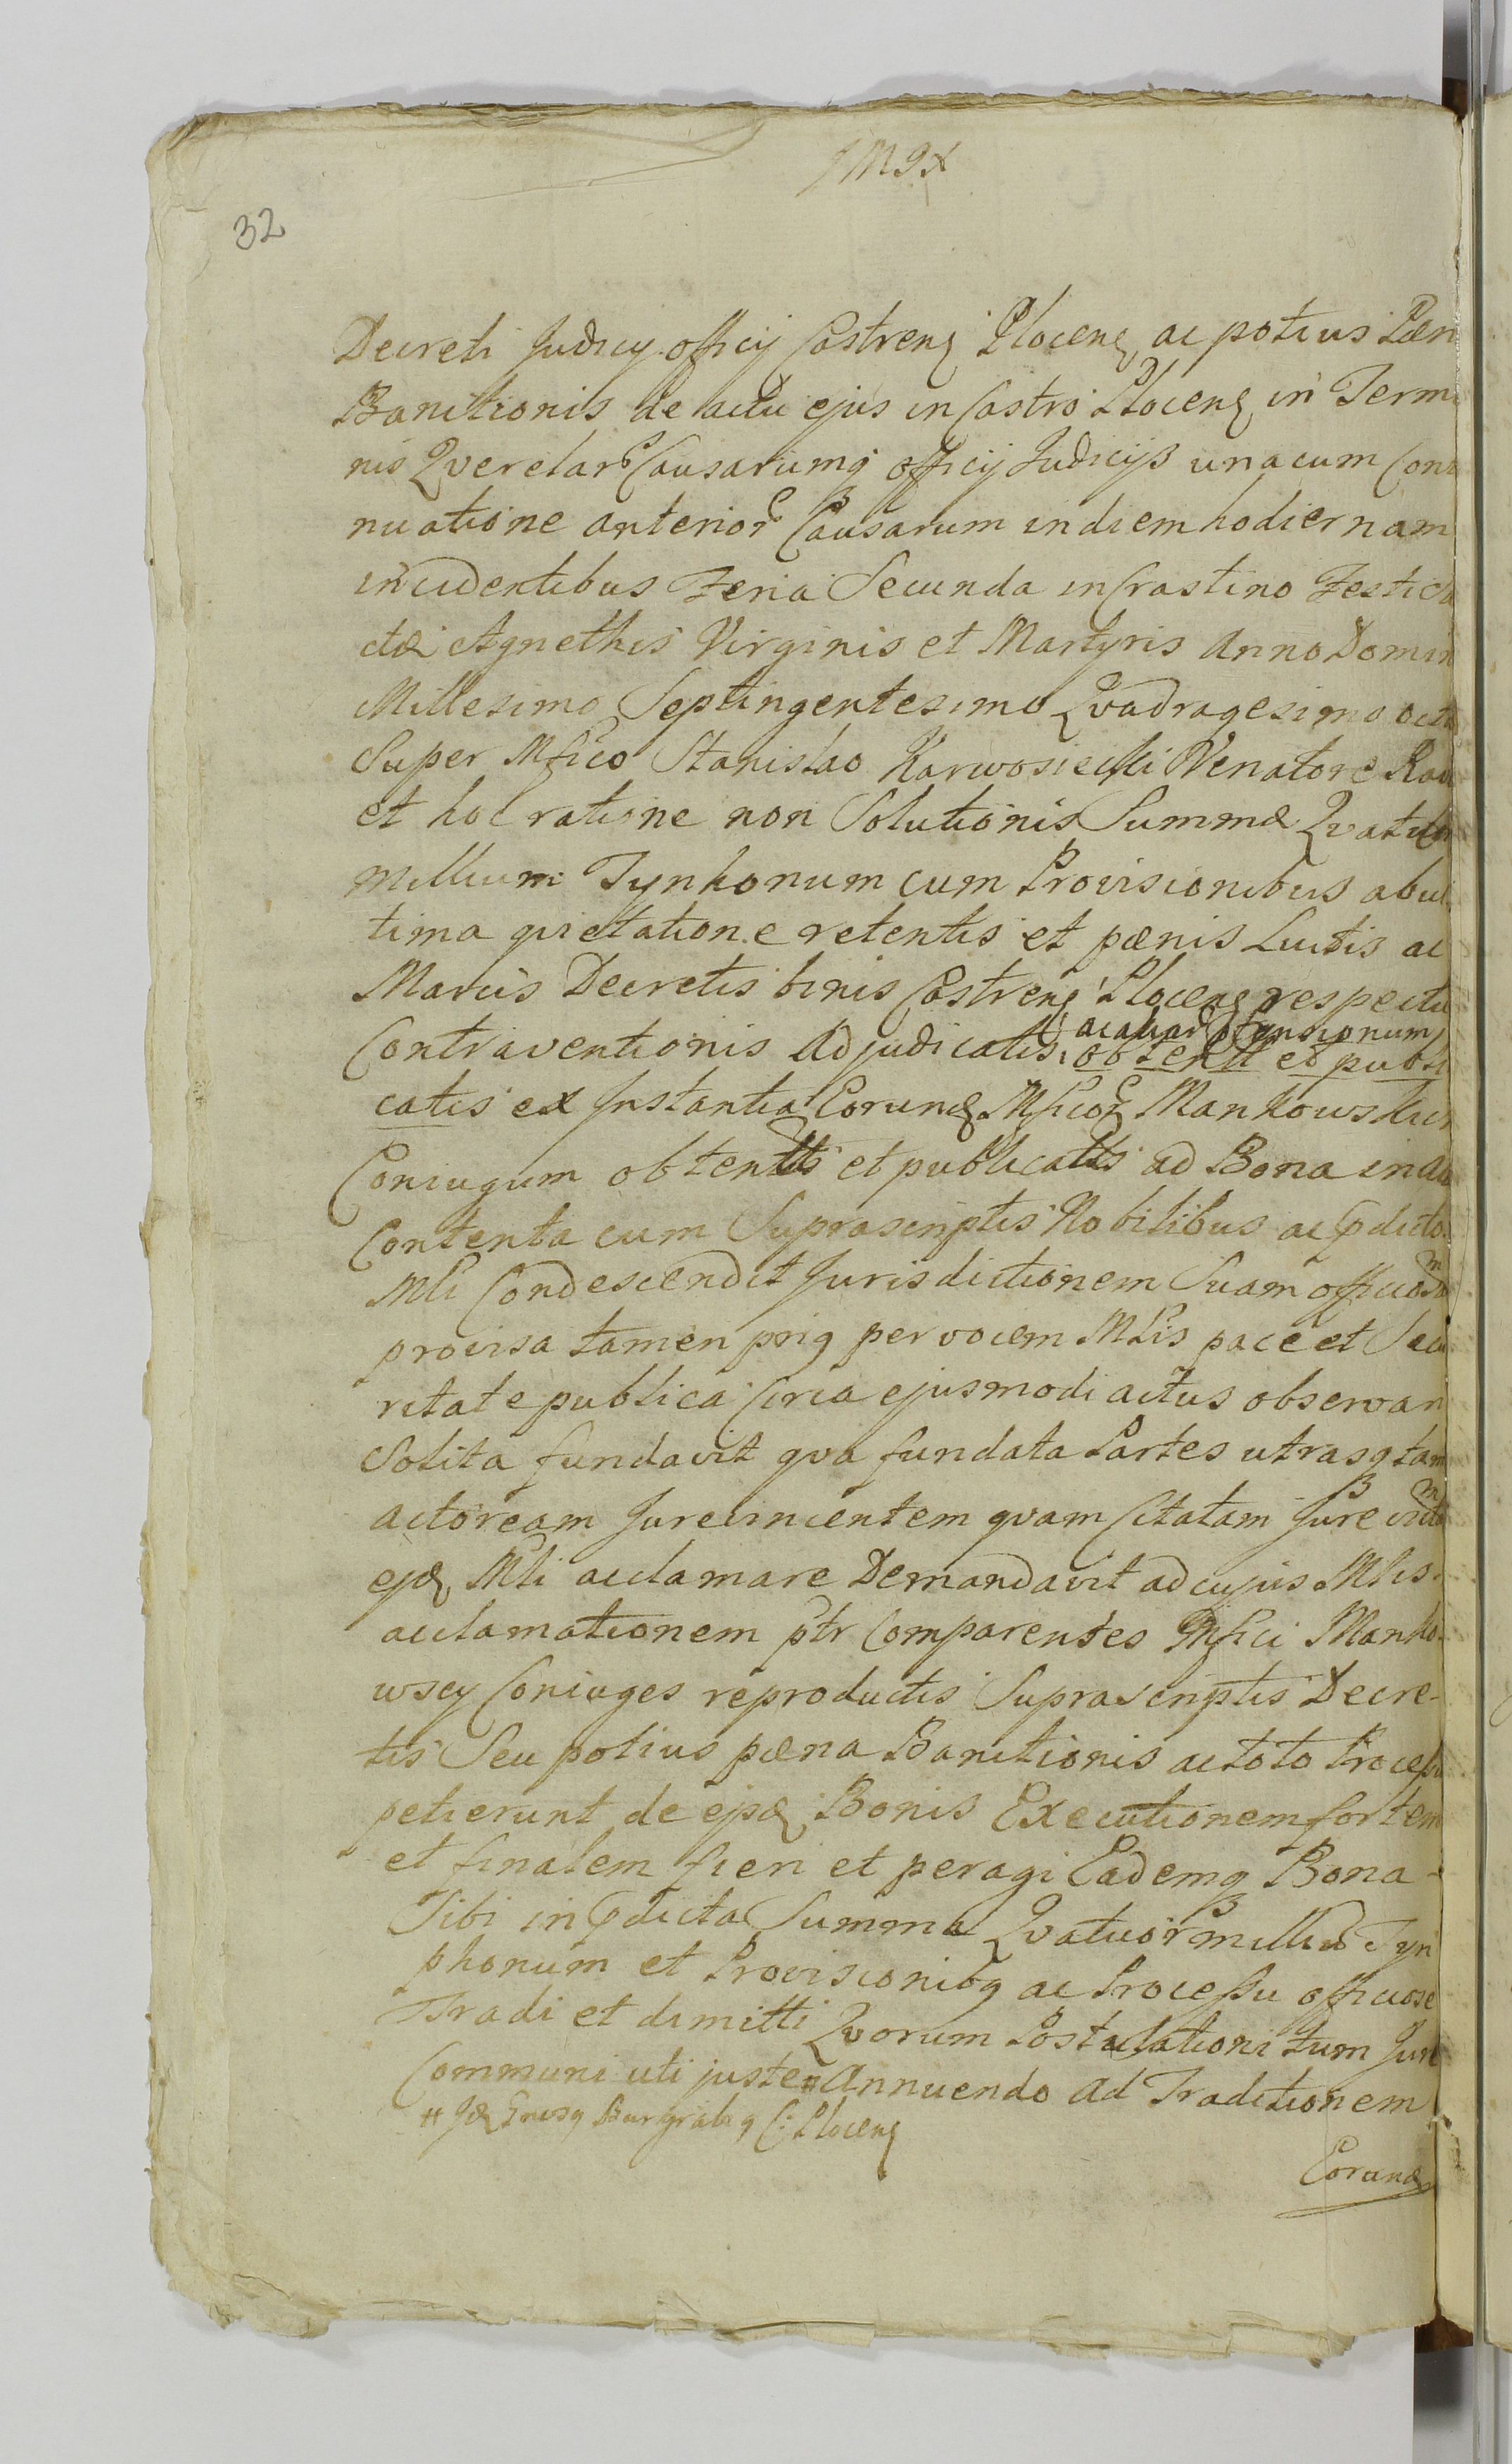 32
Decreti Judicy officij Castrens Plocens ac potius Pæn
Banitionis de actu ejus in Castro Plocens in Term
nis Qverelar Causarumq officij Judicijs una cum Con
nuatione anterior Causarum in diem hodiernam
incidentibus Feria Secunda in Crastino Festi
ctæ Agnethis Virginis et Martyris Anno Domin
Millesimo Septingentesimo Qvadragesimo octa
Super Mfico Stanislao Karwosiecki Venatore Raw
et hoc ratione non Solutionis Summæ Qvatuor
millium Tynhonum cum Provisionibus ab ul
tima qvietatione retentis et pænis Luitis ac
Marcis Decretis binis Castrens Plocens respectu
ac aliar
Contraventionis Adjudicatis obtent et publi
catis ex Instantia Eorund Mficor Mankowskich
Coniugum obtentis et publicatis ad Bona in
Contenta cum Suprascriptis Nobilibus ac pdicto
Mli Condescendit Jurisdictionem Suam officiosam
provisa tamen prius per vocem Mlis pace et Secu
ritate publica Circa ejusmodi actus observan
Solita fundavit qva fundata Partes utrasq tam
actoream Jurevincentem qvam Citatam Jure victam
ejd Mli acclamare Demandavit ad cujus Mlis
acclamationem ptr Comparentes Mfici Manko
wscy Coniuges reproductis Suprascriptis Decre-
tis Seu potius pæna Banitionis ac toto Processu
petierunt de ejsd Bonis Executionem fortem
et finalem fieri et peragi Eademq Bona
Sibi in pdicta Summa Qvatuor milliū Tyn
phonum et Provisionibq ac Processu officiose
Tradi et dimitti Qvorum Postulationi tum Juri
Communi uti juste # Annuendo ad Traditionem
# Burgrabq C: Plocens
Eorund